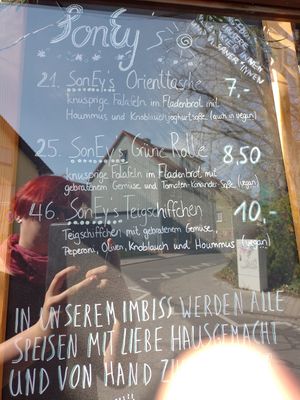 SonEy
21. SonEy's Orienttasche 7,-
knusprige Falafeln im Fladenbrot mit
Hoummus und Knoblauchjoghurtsoße (auch in vegan)
25. SonEy's Grüne Rolle 8,50
knusprige Falafeln im Fladenbrot mit
gebratenem Gemüse und Tomaten-Koriander-Soße (vegan)
46. SonEy's Teigschiffchen 10,-
Teigschiffchen mit gebratenem Gemüse,
Peperoni, Oliven, Knoblauch und Hoummus (vegan)
IN UNSEREM IMBISS WERDEN ALLE
SPEISEN MIT LIEBE HAUSGEMACHT
UND VON HAND